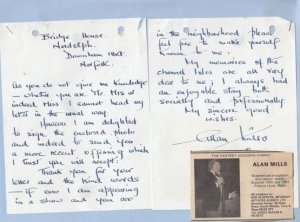 Bridge House.
Downham Mkt
Norfolk.
As you do not give me knowledge
— whether you are Mr Mrs or
indeed Miss I cannot head my
letter in the usual way.
However I am delighted
to sign the enclosed photo
and indeed to send you
a more recent offering which
I trust you will accept.
Thank you for your
letter and the kind words
if ever I am appearing
in a show and you are
in the neighborhood please
feel free to make yourself
known to me.
My memories of the
Channel Isles are all very
dear to me & I always had
an enjoyable stay both
socially and professionally
My sincere good
wishes.
Alan Mills
THE FASTEST GAGGING COMIC!
ALAN MILLS